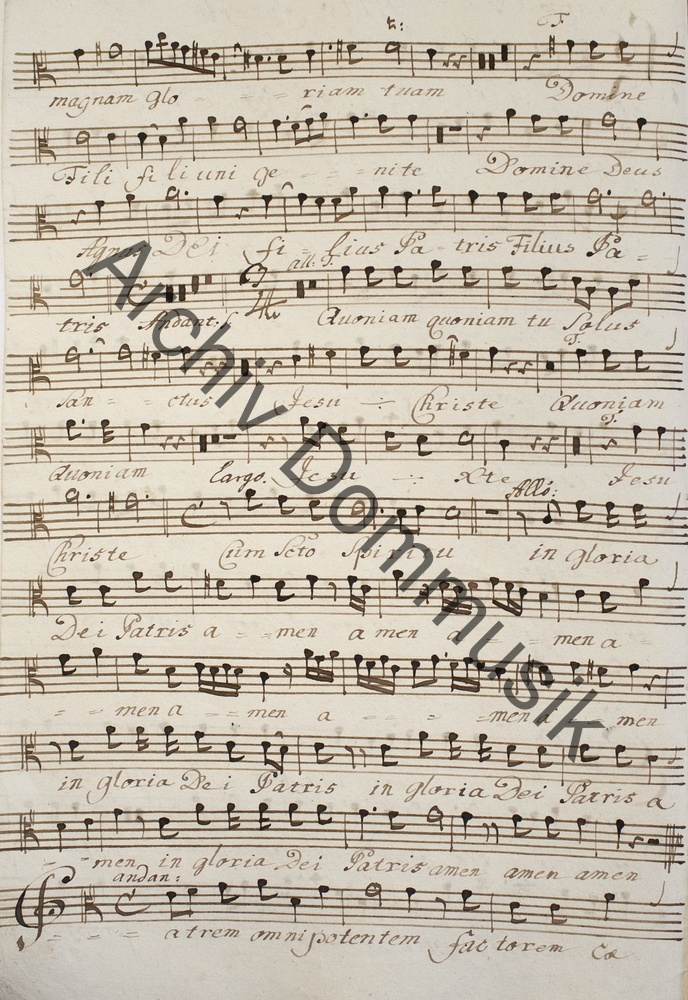 tr: T.
magnam glo - - - riam tuam Domine
Fili fili uni ge - - - nite Domine Deus
Agnus Dei fi - lius Pa - tris Filius Pa -
all: T.
tris Andant: Quoniam quoniam tu Solus
T.
San - - ctus Jesu Christe Quoniam
T.
Quoniam largo. Jesu Xte Jesu
Allo:
Christe Cum Scto Spiritu in gloria
Dei Patris a - - men a men a - - men a -
- - men a - - men a - - - - men a men
in gloria Dei Patris in gloria Dei Patris a
- - men in gloria Dei Patris amen amen amen
andan:
- - - atrem omnipotentem factorem Cœ
Archiv Dommusik